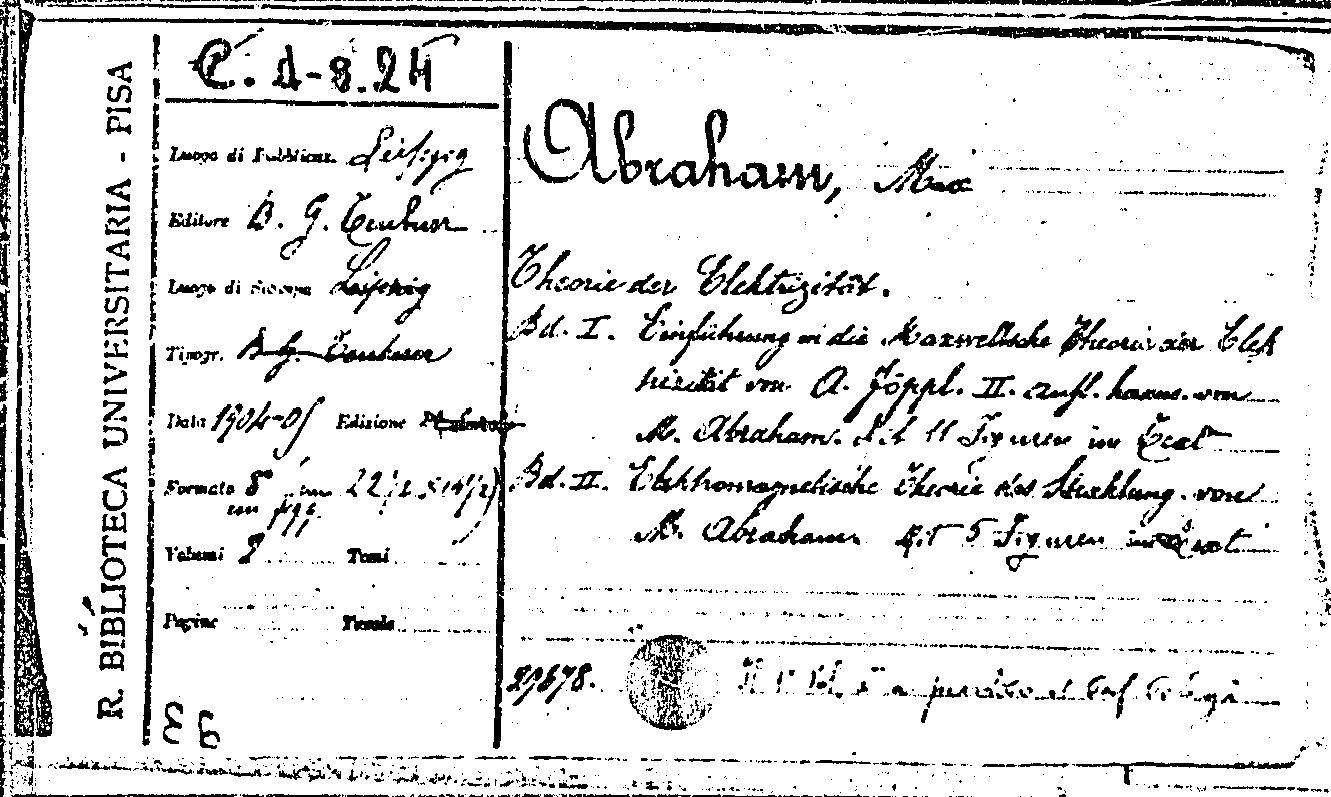 R. BIBLIOTECA UNIVERSITARIA - PISA
C. 1-8.24
Luogo di Pubblicaz. Leipzig
Editore B. G. Teubner
Luogo di stampa Leipzig
Tipogr. B. G. Teubner
Data 1904-05 Edizione
Formato 8° 22/
Volumi 2 Tomi
Pagine Tavole
Abraham, Max
Theorie der Elektrizität.
Bd. I. Einführung in die Maxwellsche Theorie der Elek
trizität von A. Föppl. II. Aufl. heraus. von
M. Abraham. Mit 11 Figuren im Text
Bd. II. Elektromagnetische Theorie des Strahlung. von
M. Abraham. Mit 5 Figuren im Text
29678.